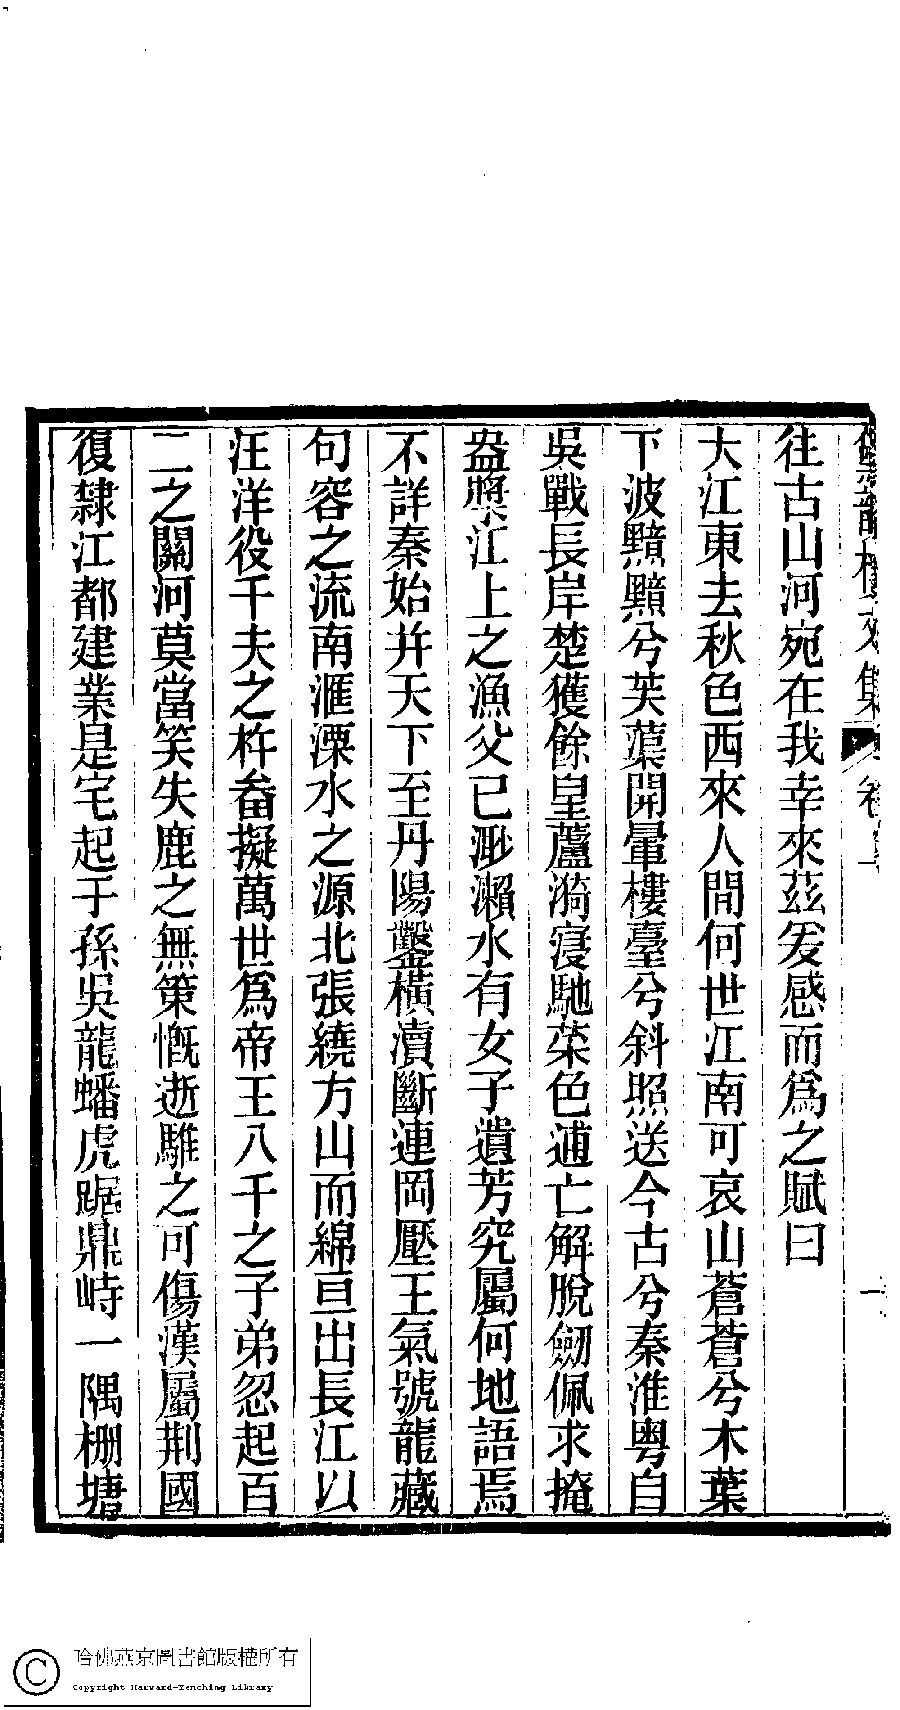 往古山河宛在我幸來茲爰感而爲之賦曰
大江東去秋色西來人間何世江南可哀山蒼蒼兮木葉
下波黯黯兮芙蕖開暈樓臺兮斜照送今古兮秦淮粵自
吳戰長岸楚獲餘皇蘆漪寖馳菜色逋亡解脫劒佩求掩
盎漿江上之漁父已渺瀨水有女子遺芳究屬何地語焉
不詳秦始并天下至丹陽鑿橫瀆斷連岡壓王氣號龍藏
句容之流南滙溧水之源北張繞方山而綿亘出長江以
汪洋役千夫之杵畚擬萬世爲帝王八千之子弟忽起百
二之關河莫當笑失鹿之無策慨逝騅之可傷漢屬荆國
復隸江都建業是宅起于孫吳龍蟠虎踞鼎峙一隅栅塘
文集 卷
一
哈佛燕京圖書館版權所有
Copyright Harvard-Yenching Library